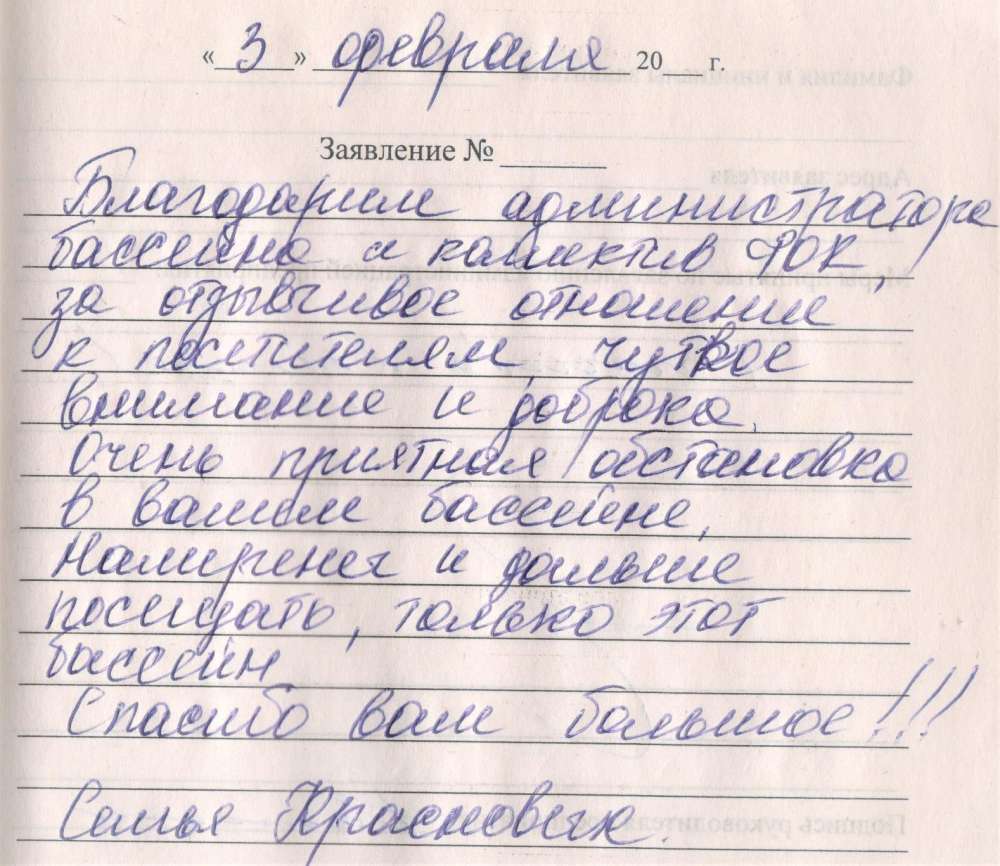 « 3 » февраля 20 г.
Заявление №
Благодарим администратора
бассейна и коллектив ФОК,
за отзывчивое отношение
к посетителям, чуткое
внимание и
Очень приятная обстановка
в вашем бассейне,
Намерены и дальше
посещать, только этот
бассейн
Спасибо вам большое!!!
Семья